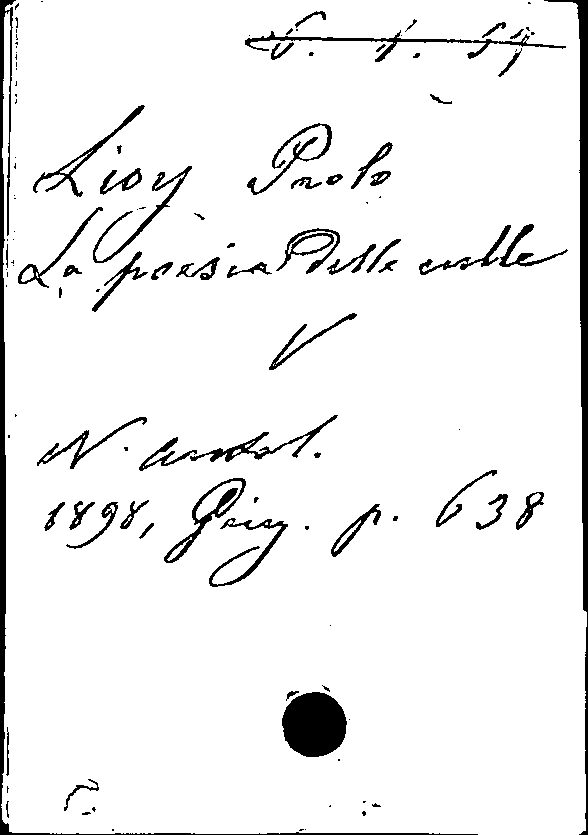 6. 4. 57
Lioy Paolo
La poesia delle culle
V
N. Antol.
1898, Giug. p. 638